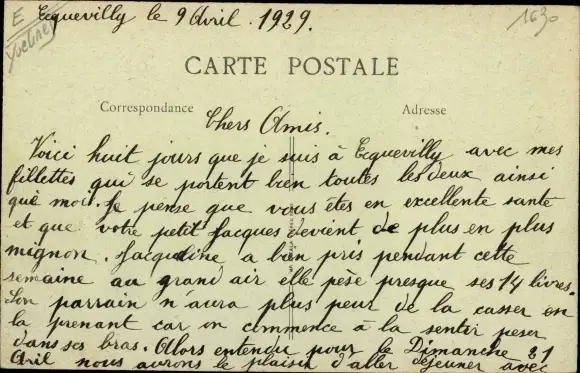 E
Yvelines
Ecquevilly le 9 Avril. 1929.
1630
CARTE POSTALE
Correspondance
Adresse
Chers Amis.
Voici huit jours que je suis à Ecquevilly avec mes
fillettes qui se portent bien toutes les deux ainsi
que moi. Je pense que vous êtes en excellente santé
et que votre petit Jacques devient de plus en plus
mignon. Jacqueline a bien pris pendant cette
semaine au grand air elle pèse presque ses 14 livres.
Son parrain n'aura plus peur de la casser en
la prenant car on commence à la sentir peser
dans ses bras. Alors entendu pour le Dimanche 21
Avril nous aurons le plaisir d'aller déjeuner avec